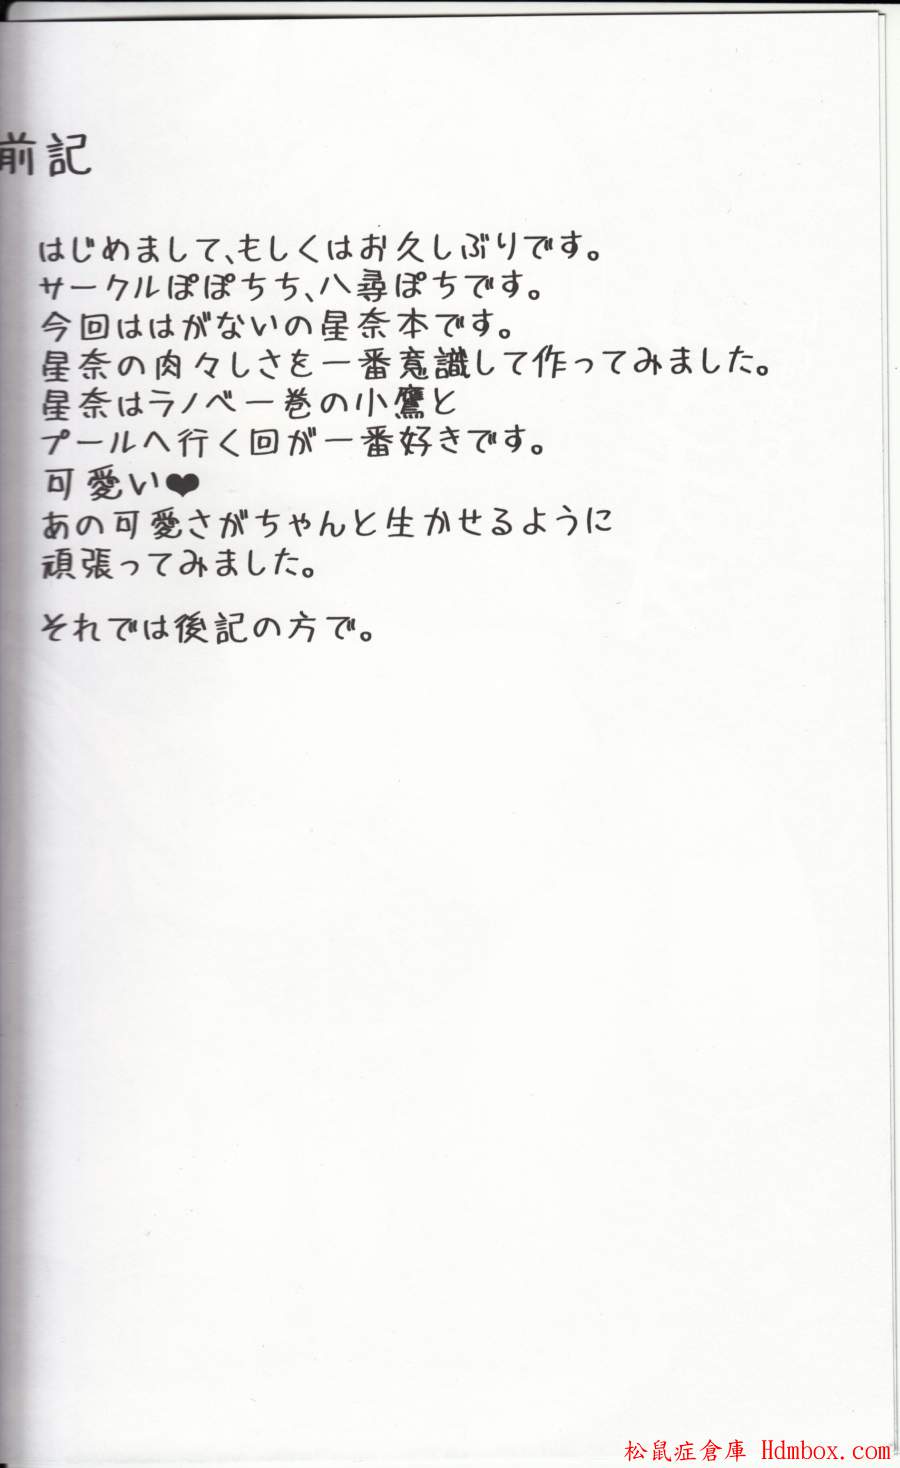 前記
はじめまして、もしくはお久しぶりです。
サークルぽぽちち、八尋ぽちです。
今回ははがないの星奈本です。
星奈の肉々しさを一番意識して作ってみました。
星奈はラノベ一巻の小鷹と
プールへ行く回が一番好きです。
可愛い❤
あの可愛さがちゃんと生かせるように
頑張ってみました。
それでは後記の方で。
松鼠症倉庫 Hdmbox.com